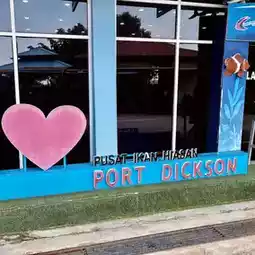 PUSAT IKAN HIASAN
PORT DICKSON
LA